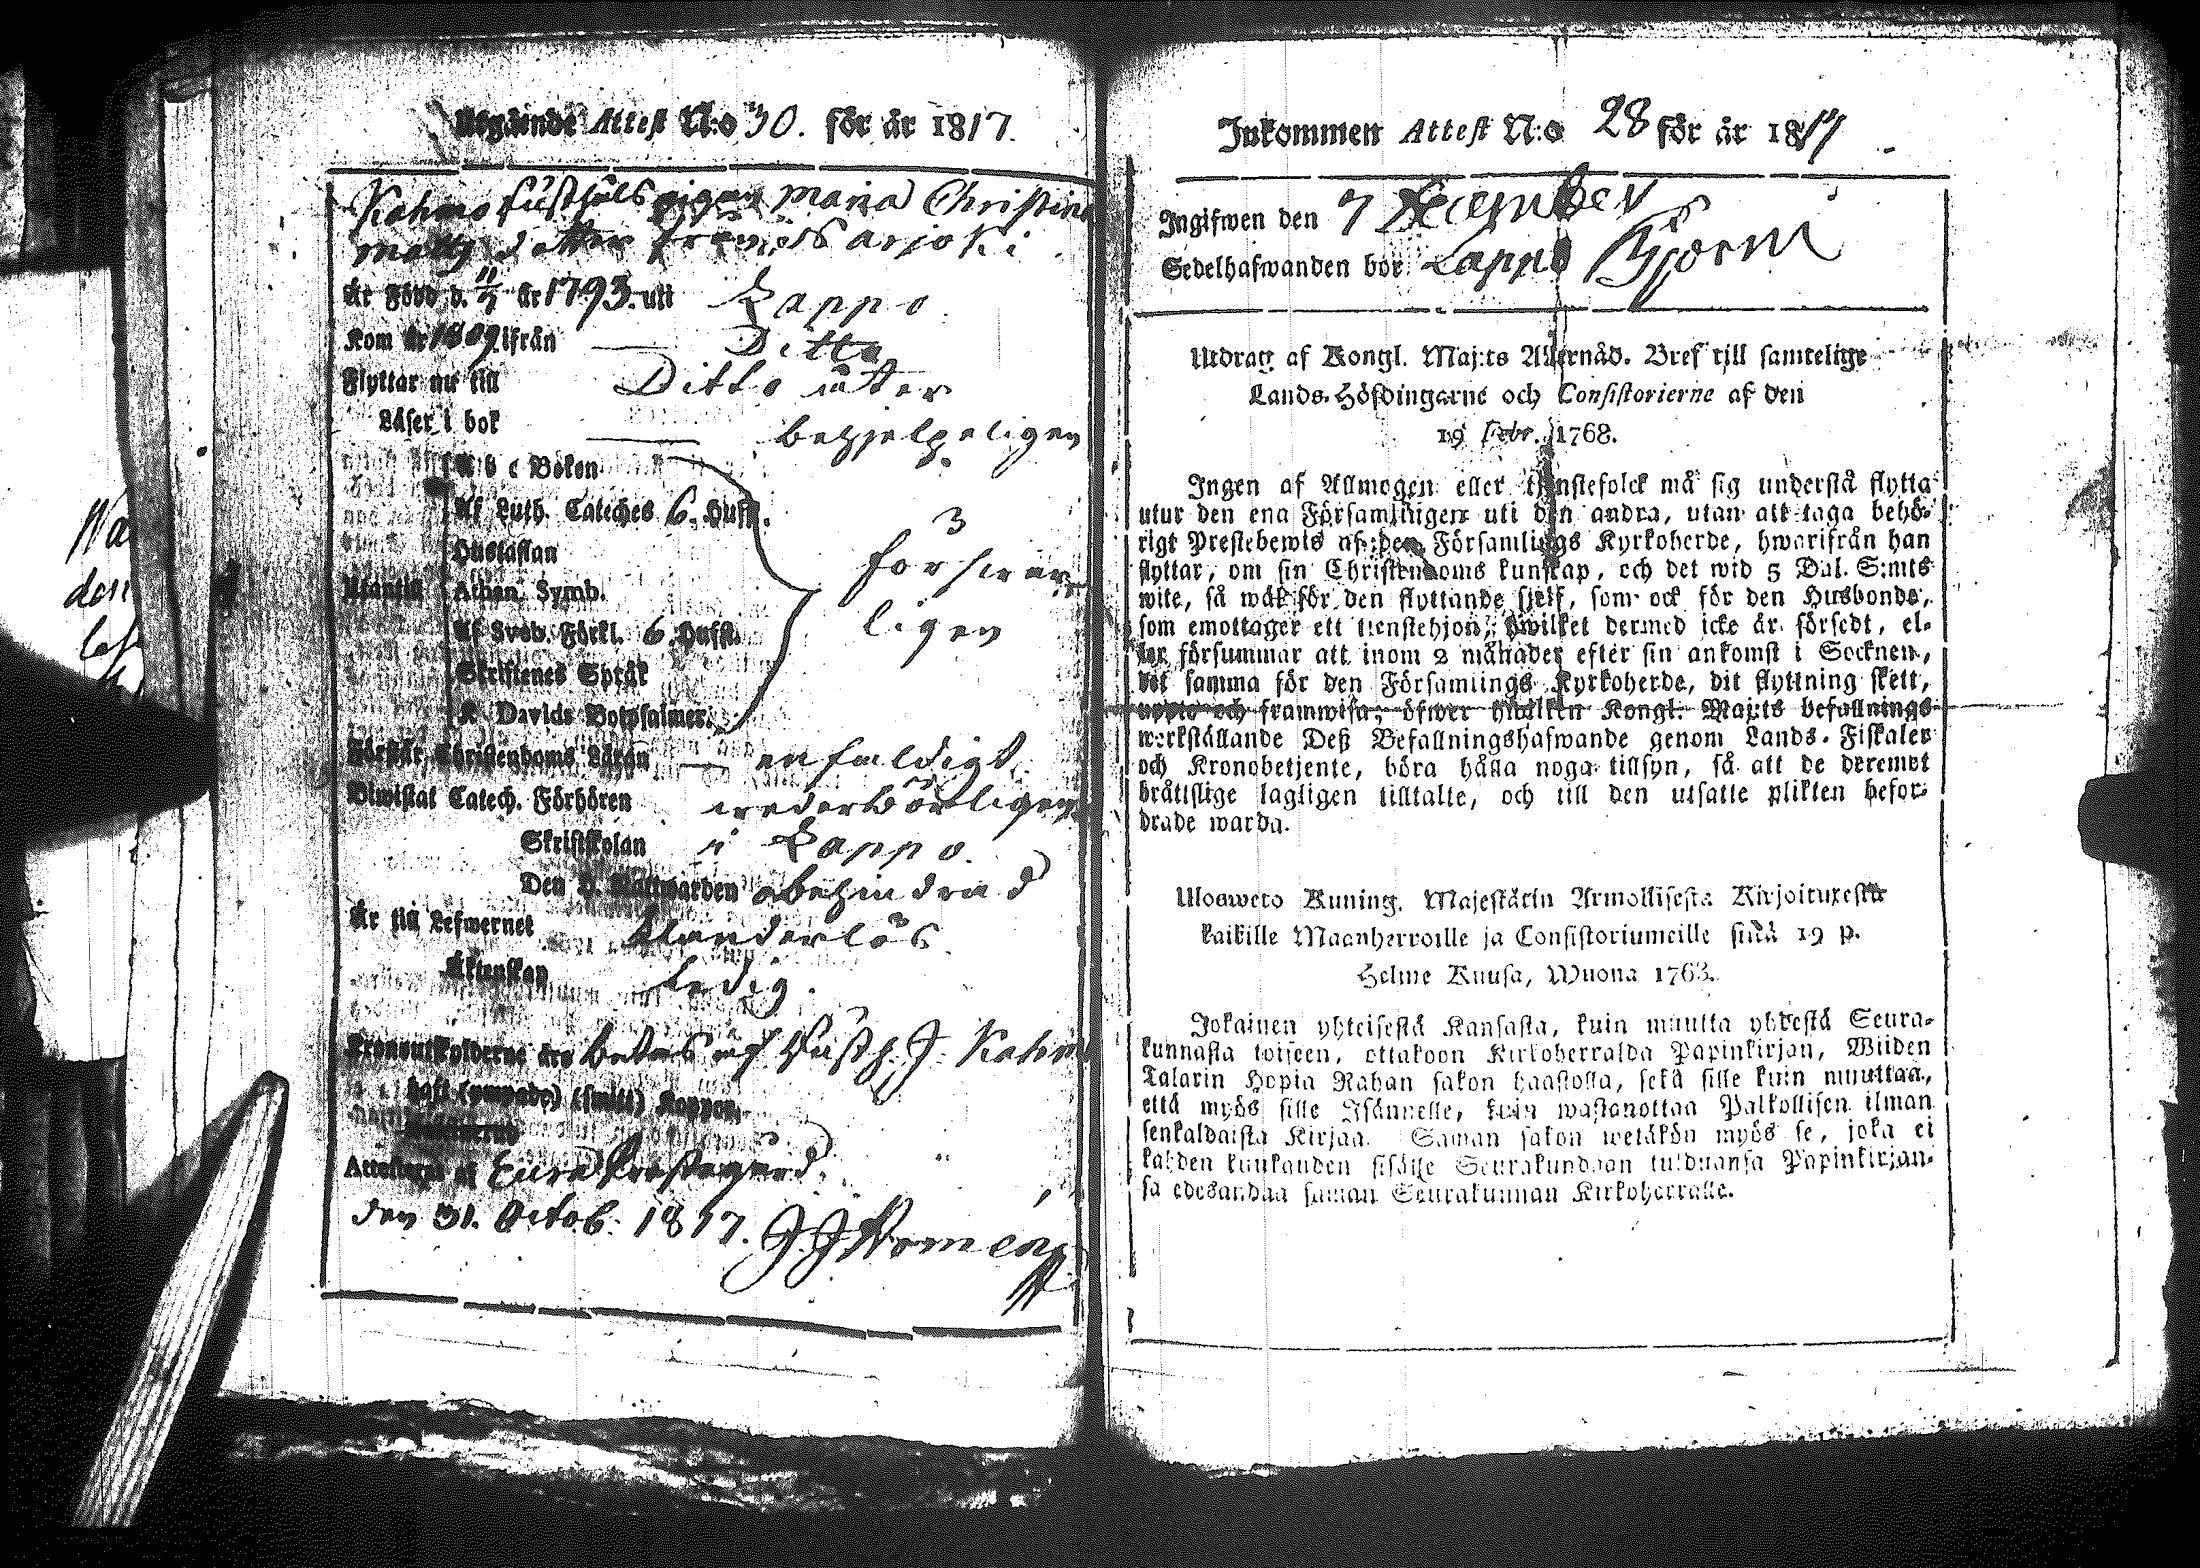 Utgående Attest N:o 30. för år 1817.
Kahmo Rusthåls pigan Maria Christina
Matts dotter från Sarjoki
Är Född d. 11/7 år 1793. uti Lappo
Kom år 1809 ifrån Ditto
Flyttar nu till Ditto åter
Läser i bok behjelpeligen
A b c Boken
Af Luth. Cateches 6. Hufst.
Hustaflan
Utantill Athan. Symb.
försvar
ligen
Af Sveb. Förkl. 6 Hufst.
Skriftenes Språk
K. Davids Botpsalmer.
Förstår Christendoms Läran enfaldigt
Biwistat Catech. Förhören wederbörligen
Skriftskolan i Lappo
Den H. Nattwarden obehindrad
Är till Lefwernet klanderlös
Äktenskap Ledig.
Kronoutskylderne äro betalas af Rusth. J. Kahm
haft (ympade) (smitt) Koppor,
Attesteras af Eura Prestegård
den 31. Octob. 1817. J J
Wa
den
Inkommen Attest N:o 28 för år 1817
Ingifwen den 7 December
Sedelhafwanden bor Lappo
Utdrag af Kongl. Maj:ts Allernåd. Bref till samtelige
Lands-Höfdingarne och Consistorierne af den
19 Febr. 1768.
Ingen af Allmogen eller tjenstefolck må sig understå flytta
utur den ena Församlingen uti den andra, utan att taga behö-
rigt Prestebewis af den Församlings Kyrkoherde, hwarifrån han
flyttar, om sin Christendoms kunskap, och det wid 5 Dal. S:mts
wite, så wäl för den flyttande sjelf, som ock för den Husbonde,
som emottager ett tienstehjon, hwilket dermed icke är försedt, el-
ler försummar att inom 2 månader efter sin ankomst i Socknen,
det samma för den Församlings Kyrkoherde, dit flyttning skett,
uppte och framwisa; öfwer hwilken Kongl. Maj:ts befallnings
werkställande Deß Befallningshafwande genom Lands-Fiskaler
och Kronobetjente, böra hålla noga tillsyn, så att de deremot
bråttslige lagligen tilltalte, och till den utsatte plikten befor-
drade warda.
Ulosweto Kuning. Majestätin Armollisesta Kirjoituxesta
kaikille Maanherroille ja Consistoriumeille siitä 19 p.
Helme Kuusa, Wuona 1768.
Jokainen yhteisestä Kansasta, kuin muutta yhdestä Seura-
kunnasta toiseen, ottakoon Kirkoherralda Papinkirjan, Wiiden
Talarin Hopia Rahan sakon haastolla, sekä sille kuin muuttaa,
että myös sille Isännelle, kuin wastanottaa Palkollisen ilman
senkaldaista Kirjaa. Saman sakon wetäkön myös se, joka ei
kahden kuukauden sisälle Seurakundaan tulduansa Papinkirjan-
sa edesandaa saman Seurakunnan Kirkoherralle.